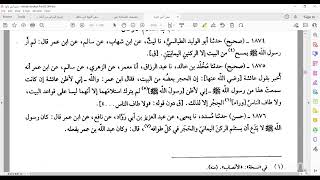 ١٨٧٤ - (صحيح) حدثنا أبو الوليد الطيالسي، نا ليث، عن ابن شهاب، عن سالم، عن ابن عمر قال: لم أر
رسول الله ﷺ يمسح من البيت إلا الركنين اليمانيين.
١٨٧٥ - (صحيح) حدثنا مخلد بن خالد، نا عبد الرزاق، أنا معمر، عن الزهري، عن سالم، عن ابن عمر: أنه
أخبر بقول عائشة [رضي الله عنها]: إن الحجر بعضه من البيت، فقال ابن عمر: والله إني لأظن عائشة إن كانت
سمعت هذا من رسول الله ﷺ إني لأظن رسول الله ﷺ لم يترك استلامهما إلا أنهما ليسا على قواعد البيت،
ولا طاف الناس [وراء] الحجر إلا لذلك. [ق دون قوله: ولا طاف الناس...]
١٨٧٦ - (حسن) حدثنا مسدد، نا يحيى، عن عبد العزيز بن أبي رواد، عن نافع، عن ابن عمر قال: كان رسول
الله ﷺ لا يدع أن يستلم الركن اليماني والحجر في كل طوافه، قال: وكان عبد الله بن عمر يفعله.
(١) في نسخة: